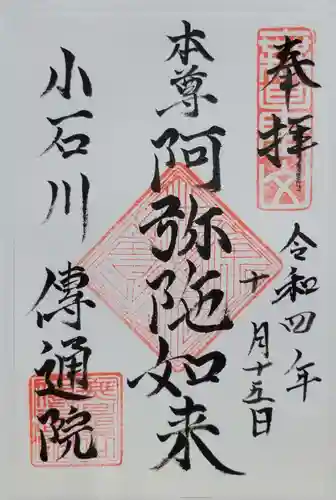 奉拝
令和四年
十月十五日
本尊
阿弥陀如来
小石川
傳通院